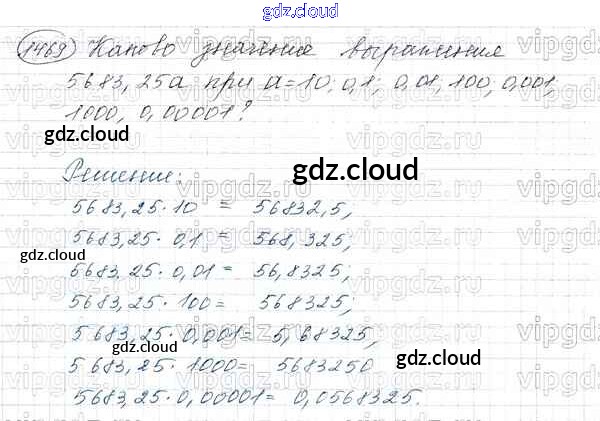 gdz.cloud
1469 Каково значение выражения
5683,25а при а=10; 0,1; 0,01, 100, 0,001,
1000, 0,00001?
Решение:
gdz.cloud
5683,25·10 = 56832,5;
5683,25·0,1 = 568,325;
gdz.cloud
5683.25·0,01 = 56,8325;
5683,25·100 = 568325;
5683,25·0,001= 5,68325;
gdz.cloud
gdz.cloud
5683,25·1000= 5683250
5683,25·0,00001= 0,0568325.